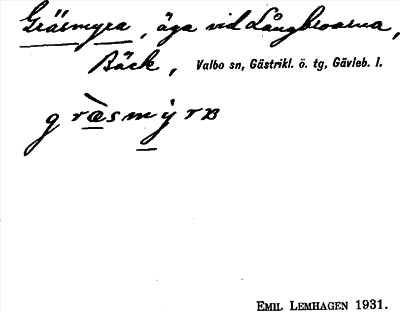 Gräsmyra, äga vid Långbroarna,
Bäck, Valbo sn, Gästrikl. ö. tg, Gävleb. l.
græ̀smỳrʙ
EMIL LEMHAGEN 1931.